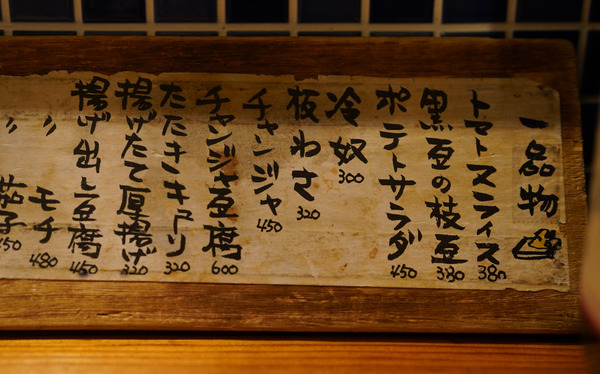 一品物
トマトスライス 380
黒豆の枝豆 380
ポテトサラダ 450
冷奴 300
板わさ 320
チャンジャ 450
チャンジャ豆腐 600
たたきキウリ 320
揚げたて厚揚げ 320
揚げ出し豆腐 450
〃 モチ 480
〃 茄子 450